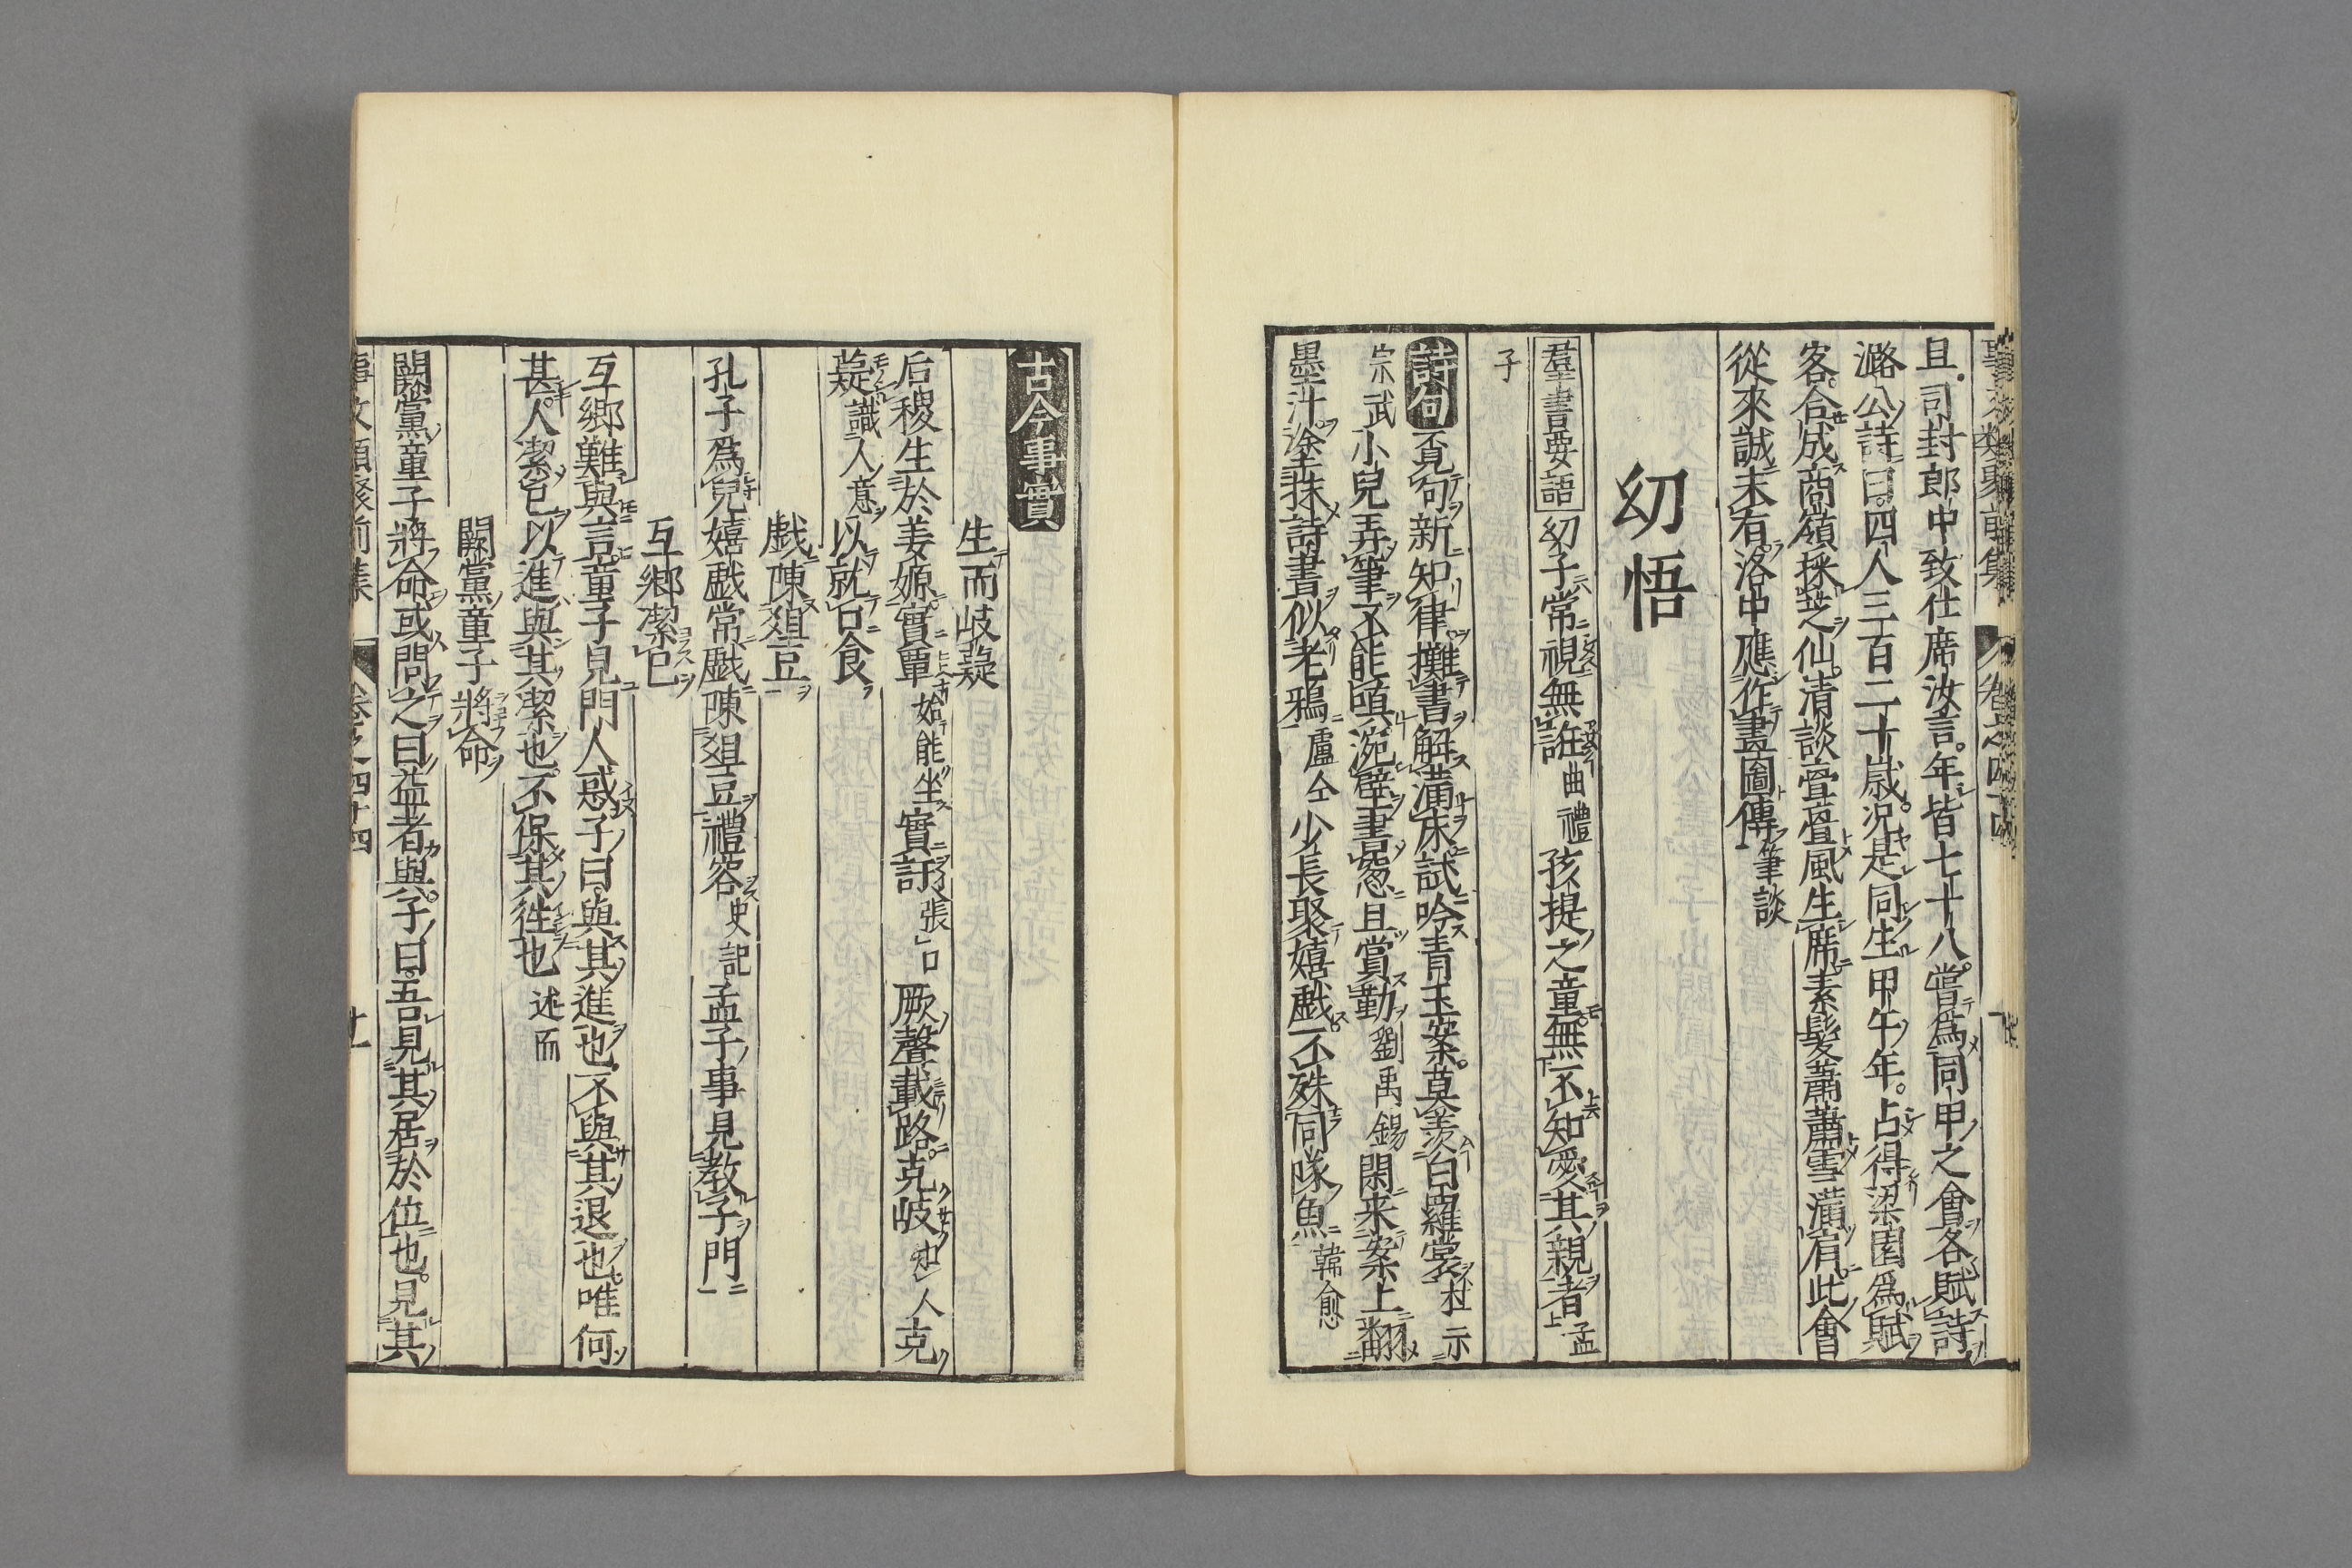 且司封郎中致仕席汝言年皆七十八嘗爲同甲之會各賦詩
潞公詩曰四人三百二十歲況是同生甲午年占得梁園爲賦
客合成商嶺採芝仙清談亹亹風生席素髮蕭蕭雪滿肩此會
從來誠未有洛中應作畫圖傳筆談
幼悟
羣書要語 幼子常視無誑曲禮孩提之童無不知愛其親者孟
子
詩句 覓句新知律攤書解滿床試吟青玉案莫羡白羅裳杜示
宗武小兒弄筆不能嗔涴壁書窓且賞勤劉禹錫閑来案上翻
墨汁塗抹詩書似老鴉盧仝少長聚嬉戱不殊同隊魚韓愈
古今事實
生而岐嶷
后稷生於姜嫄實覃始能坐實訏張口厥聲載路克岐知人克
嶷識人意以就口食
戱陳爼豆
孔子爲兒嬉戱常戱陳爼豆禮容史記孟子事見教子門
互郷潔己
互郷難與言童子見門人惑子曰與其進也不與其退也唯何
甚人潔己以進與其潔也不保其徃也述而
闕黨童子將命
闕黨童子將命或問之曰益者與子曰吾見其居於位也見其
事文類聚前集 卷之四十四 廿一